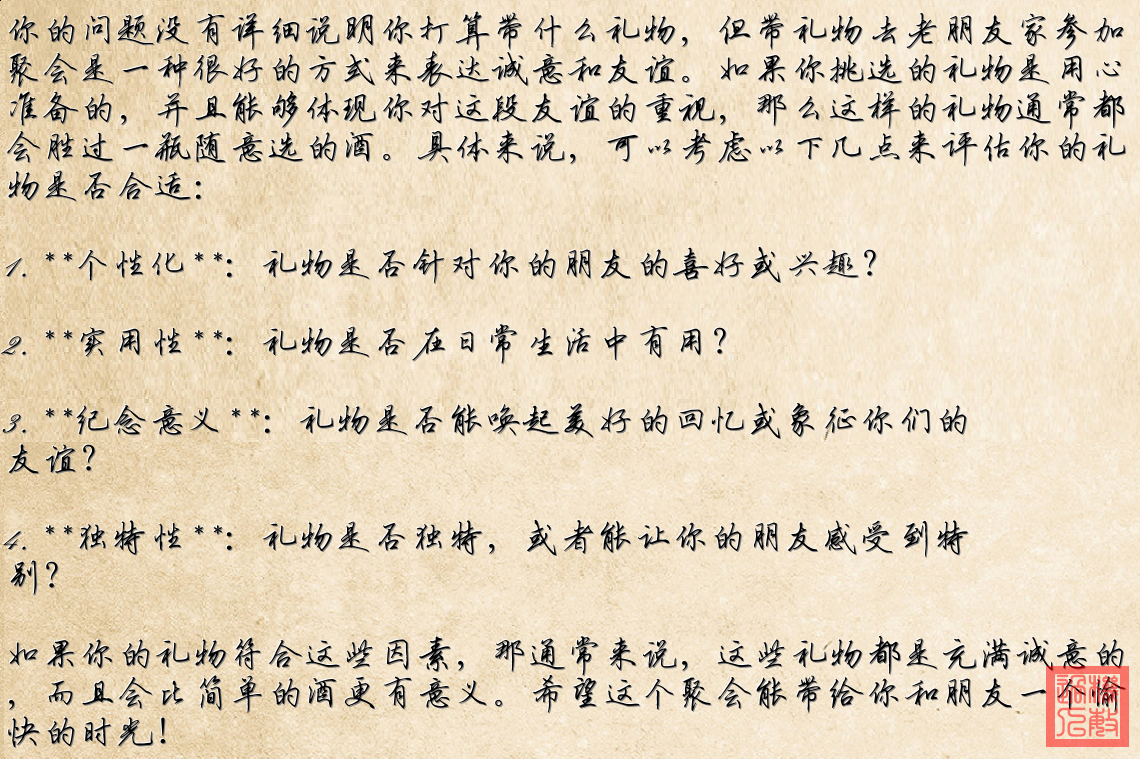 你的问题没有详细说明你打算带什么礼物，但带礼物去老朋友家参加
聚会是一种很好的方式来表达诚意和友谊。如果你挑选的礼物是用心
准备的，并且能够体现你对这段友谊的重视，那么这样的礼物通常都
会胜过一瓶随意选的酒。具体来说，可以考虑以下几点来评估你的礼
物是否合适：
1. **个性化**：礼物是否针对你的朋友的喜好或兴趣？
2. **实用性**：礼物是否在日常生活中有用？
3. **纪念意义**：礼物是否能唤起美好的回忆或象征你们的
友谊？
4. **独特性**：礼物是否独特，或者能让你的朋友感受到特
别？
如果你的礼物符合这些因素，那通常来说，这些礼物都是充满诚意的
，而且会比简单的酒更有意义。希望这个聚会能带给你和朋友一个愉
快的时光！